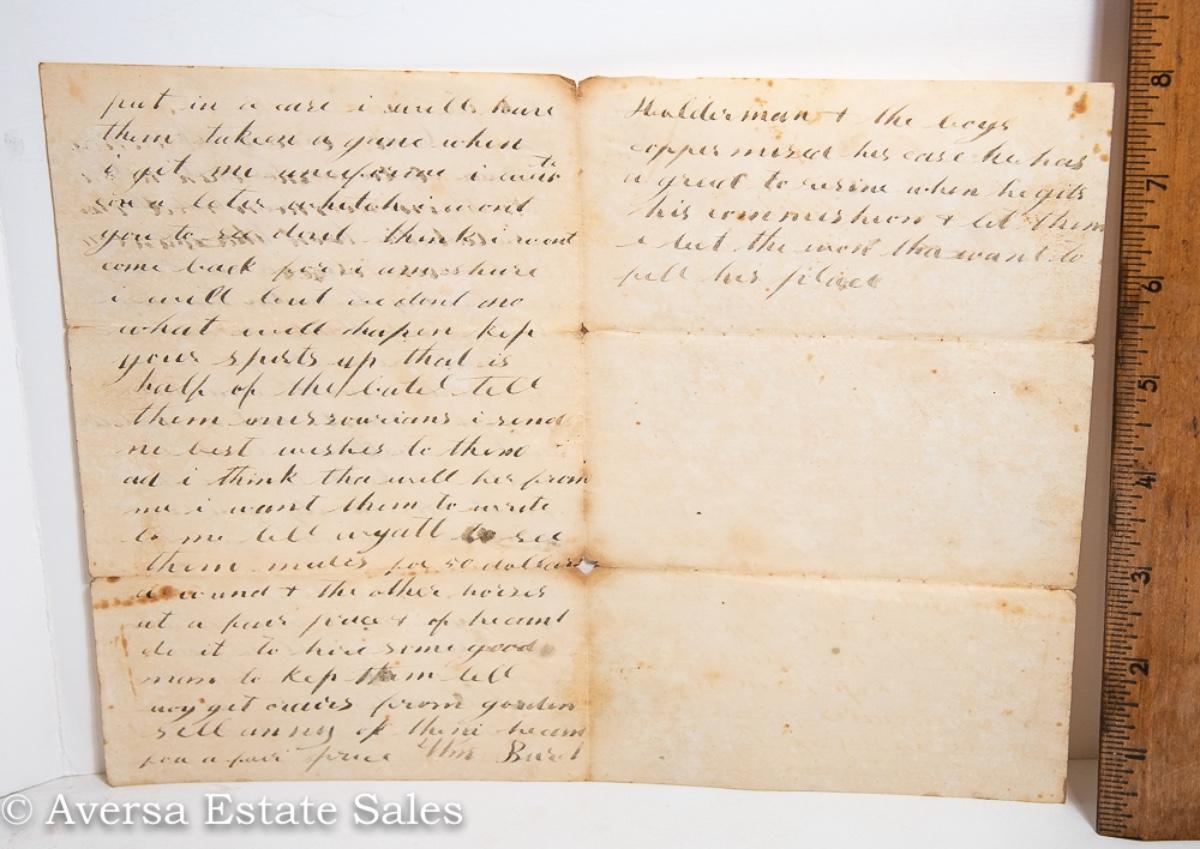 put in a case i will have
them taken a gane when
i get me uneiforme i
you a leter whitch i wont
you to see dont think i wont
come back for i am shure
i will but we dont no
what will hapen kep
your spirts up that is
half of the batel tell
them messourians i send
me best wishes to them
ad i think tha will her from
me i want them to write
to me tell wyatt to sel
them mules for 50 dollars
a round & the other horses
at a fair price & if he cant
do it to hire some good
man to kep them tell
get from gorden
sell anny of them he can
for a fair price Wm
Halderman & the boys
his case he has
a great to resine when he gits
his commishion & let them
the won tha want to
fill his place
8
7
6
5
4
3
2
© Aversa Estate Sales